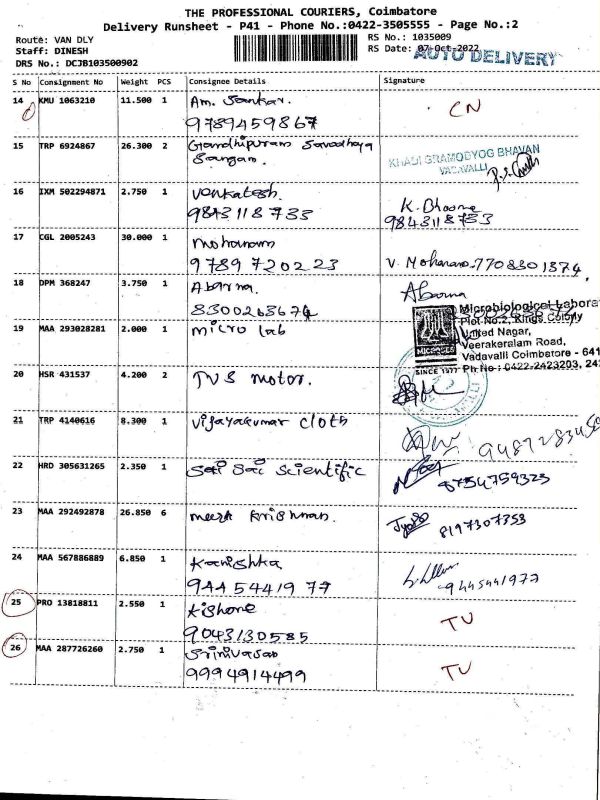 THE PROFESSIONAL COURIERS, Coimbatore
Delivery Runsheet - P41 - Phone No.:0422-3505555 - Page No.:2
Route: VAN DLY RS No.: 1035009
Staff: DINESH RS Date: 07-Oct-2022
AUTO DELIVERY
DRS No.: DCJB103500902
S No Consignment No Weight PCS Consignee Details Signature
14 KMU 1063210 11.500 1 Am. Sankar. CN
9789459867
15 TRP 6924867 26.300 2 Gandhipuram Savodhaya
Sangam.
KHADI GRAMODYOG BHAVAN
VADAVALLI
16 IXM 502294871 2.750 1 Venkatesh. K. Bhoome
9843118733 9843118733
17 CGL 2005243 30.000 1 Mohanam
9789720223 V. Mohanan 7708301374
18 DPM 368247 3.750 1 Abarna. Abarna
8300263674
19 MAA 293028281 2.000 1 micro lab
Microbiological Labora
Plot No.2, Kings Colony
United Nagar,
Veerakeralam Road,
Vadavalli Coimbatore - 641
SINCE 1977 Ph No : 0422-2423203, 242
20 HSR 431537 4.200 2 TVS motor.
21 TRP 4140616 8.300 1 Vijayakumar cloth
22 HRD 305631265 2.350 1 Sai Sai Scientific 8754759323
23 MAA 292492878 26.850 6 meera krishnan. 8197307353
24 MAA 567886889 6.850 1 Kanishka
9445441977 9445441977
25 PRO 13818811 2.550 1 Kishore TU
9043130585
26 MAA 287726260 2.750 1 Srinivasan TU
9994914499